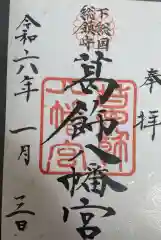 奉拝
下総国
総鎮守
葛飾八幡宮
令和六年一月三日
葛飾
八幡宮